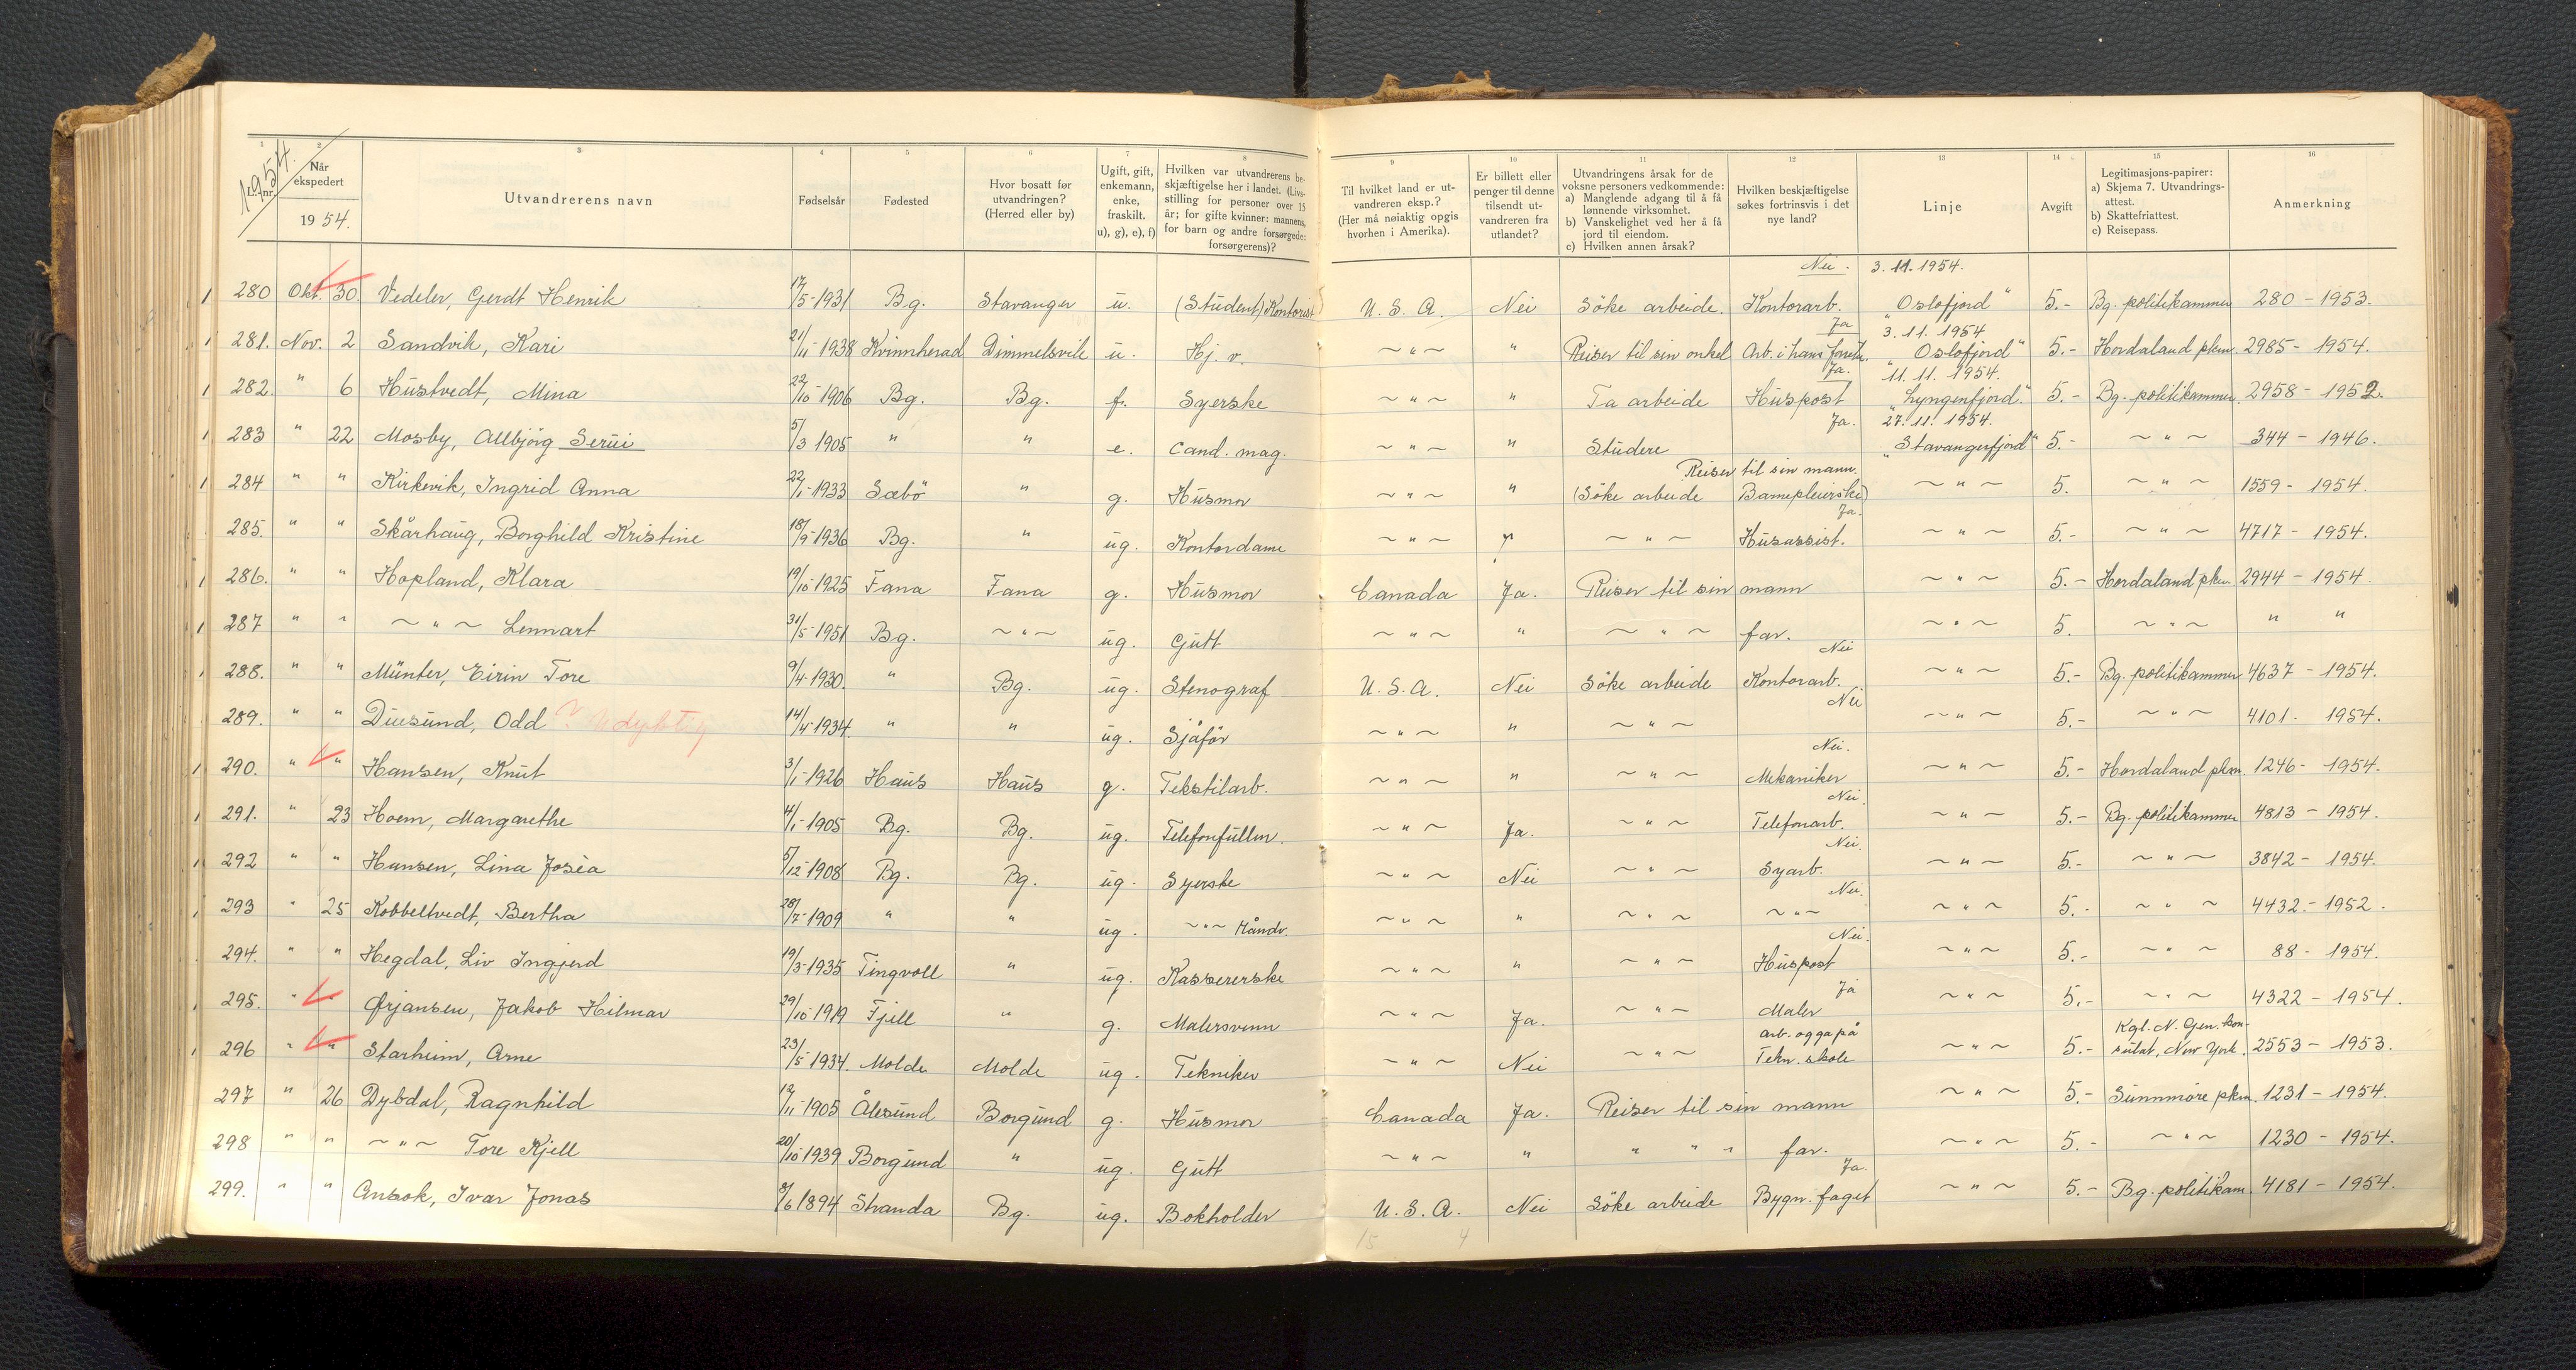 1 2 3 4 5 6 7 8 9 10 11 12 13 14 15 16
1954.
L. nr.
Når ekspedert
1954.
Utvandrerens navn
Fødselsår
Fødested
Hvor bosatt før utvandringen? (Herred eller by)
Ugift, gift, enkemann, enke, fraskilt. u), g), e), f)
Hvilken var utvandrerens beskjæftigelse her i landet. (Livsstilling for personer over 15 år; for gifte kvinner: mannens, for barn og andre forsørgede: forsørgerens)?
Til hvilket land er utvandreren eksp.? (Her må nøiaktig opgis hvorhen i Amerika).
Er billett eller penger til denne tilsendt utvandreren fra utlandet?
Utvandringens årsak for de voksne personers vedkommende: a) Manglende adgang til å få lønnende virksomhet. b) Vanskelighet ved her å få jord til eiendom. c) Hvilken annen årsak?
Hvilken beskjæftigelse søkes fortrinsvis i det nye land?
Linje
Avgift
Legitimasjons-papirer: a) Skjema 7. Utvandringsattest. b) Skattefriattest. c) Reisepass.
Anmerkning
Nei. 3.11.1954.
1 280 Okt. 30. Vedeler, Gerdt Henrik 17/5-1931 Bg. Stavanger u. (Student) Kontorist U.S.A. Nei Söke arbeide. Kontorarb. "Oslofjord" 5.- Bg. politikammer 280 - 1953.
Ja 3.11.1954
1 281. Nov. 2 Sandvik, Kari 21/11-1938 Kvinnherad Dimmelsvik u. Hj. v. ~"~ " Reiser til sin onkel Arb. i hans forretn. "Oslofjord" 5.- Hordaland pkm. 2985 - 1954.
Ja. 11.11.1954.
1 282. " 6 Hustvedt, Mina 22/10-1906 Bg. Bg. f. Syerske ~"~ " Ta arbeide Huspost "Lyngenfjord". 5.- Bg. politikammer 2958 - 1952.
Ja. 27.11.1954.
1 283 " 22 Mosby, Allbjörg Serui 5/3 1905 " " e. Cand. mag. ~"~ " Studere "Stavangerfjord" 5.- ~"~ 344 - 1946.
Reiser til sin mann.
1 284 " " Kirkevik, Ingrid Anna 22/1-1933 Sæbö " g. Husmor ~"~ " (Söke arbeide Barnepleierske) ~"~ 5. ~"~ 1559 - 1954.
Ja.
1 285. " " Skårhaug, Borghild Kristine 18/9-1936 Bg. " ug. Kontordame ~"~ " ~"~ Husassist. ~"~ 5.- ~"~ 4717 - 1954.
1 286. " " Hopland, Klara 19/10-1925 Fana Fana g. Husmor Canada Ja. Reiser til sin mann ~"~ 5.- Hordaland pkm. 2944 - 1954.
1 287 " " ~"~ Lennart 31/5-1951 Bg. ~"~ ug. Gutt ~"~ " ~"~ far. ~"~ 5. ~"~ " "
Nei
1 288. " " Münter, Eirin Tore 9/4-1930. " Bg. ug. Stenograf U.S.A. Nei Söke arbeide Kontorarb. ~"~ 5.- Bg. politikammer 4637 - 1954.
Nei
1 289. " " Diesund, Odd ? Udyktig 14/4 1934. " " ug. Sjåför ~"~ " ~"~ ~"~ 5.- ~"~ 4101 - 1954.
Nei.
1 290. " " Hansen, Knut 3/1-1926 Haus Haus g. Tekstilarb. ~"~ " ~"~ Mekaniker ~"~ 5.- Hordaland pkm. 1246 - 1954.
Nei.
1 291. " 23 Hoem, Margarethe 4/1-1905 Bg. Bg. ug. Telefonfullm. ~"~ Ja. ~"~ Telefonarb. ~"~ 5.- Bg. politikammer 4813 - 1954.
Nei.
1 292 " " Hansen, Lina Joséa 5/12-1908 Bg. Bg. ug. Syerske ~"~ Nei ~"~ Syarb. ~"~ 5.- ~"~ 3842 - 1954.
Nei.
1 293 " 25 Kobbeltvedt, Bertha 28/7-1909 " " ug. ~"~ Håndv. ~"~ " ~"~ ~"~ ~"~ 5.- ~"~ 4432.- 1952.
Nei.
294. " " Hegdal, Liv Ingjerd 19/3-1935 Tingvoll " ug. Kassererske ~"~ " ~"~ Huspost ~"~ 5.- ~"~ 88 - 1954.
Ja
1 295. " " Ørjansen, Jakob Hilmar 29/10-1919 Fjell " g. Malersvenn ~"~ Ja. ~"~ Maler ~"~ 5.- ~"~ 4322 - 1954.
arb. og gå på Kgl. N. Gen. kon-
1 296 " " Starheim, Arne 23/5-1934. Molde Molde ug. Tekniker ~"~ Nei ~"~ Tekn. skole ~"~ 5.- sulat, New York. 2553 - 1953.
297 " 26 Dybdal, Ragnhild 12/11-1905 Ålesund Borgund g. Husmor Canada Ja. Reiser til sin mann ~"~ 5.- Sunnmöre pkm. 1231 - 1954.
298 " " ~"~ Tore Kjell 20/10 1939 Borgund " ug. Gutt ~"~ " " " " far. ~"~ 5.- ~"~ 1230 - 1954.
Ja.
299. " " Ansok, Ivar Jonas /6 1894 Stranda Bg. ug. Bokholder U.S.A. Nei Söke arbeide Bygn. faget ~"~ 5.- Bg. politikam. 4181 - 1954.
15 4